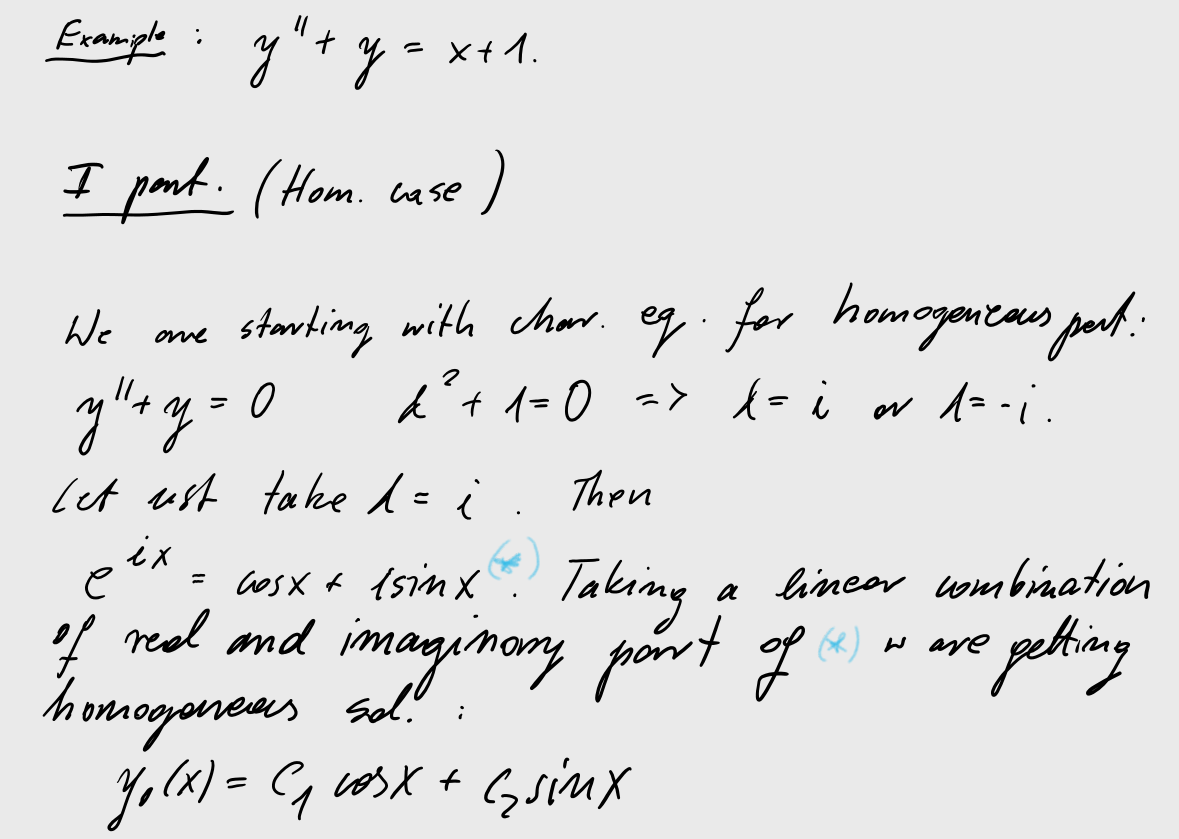 Example : y'' + y = x + 1.
I part. (Hom. case)
We are starting with char. eq. for homogeneous part:
y'' + y = 0 λ² + 1 = 0 => λ = i or λ = -i.
Let ust take λ = i. Then
e^{ix} = cos x + i sin x (*). Taking a linear combination
of real and imaginary part of (*) w are getting
homogeneous sol. :
y₀(x) = C₁ cos x + C₂ sin x